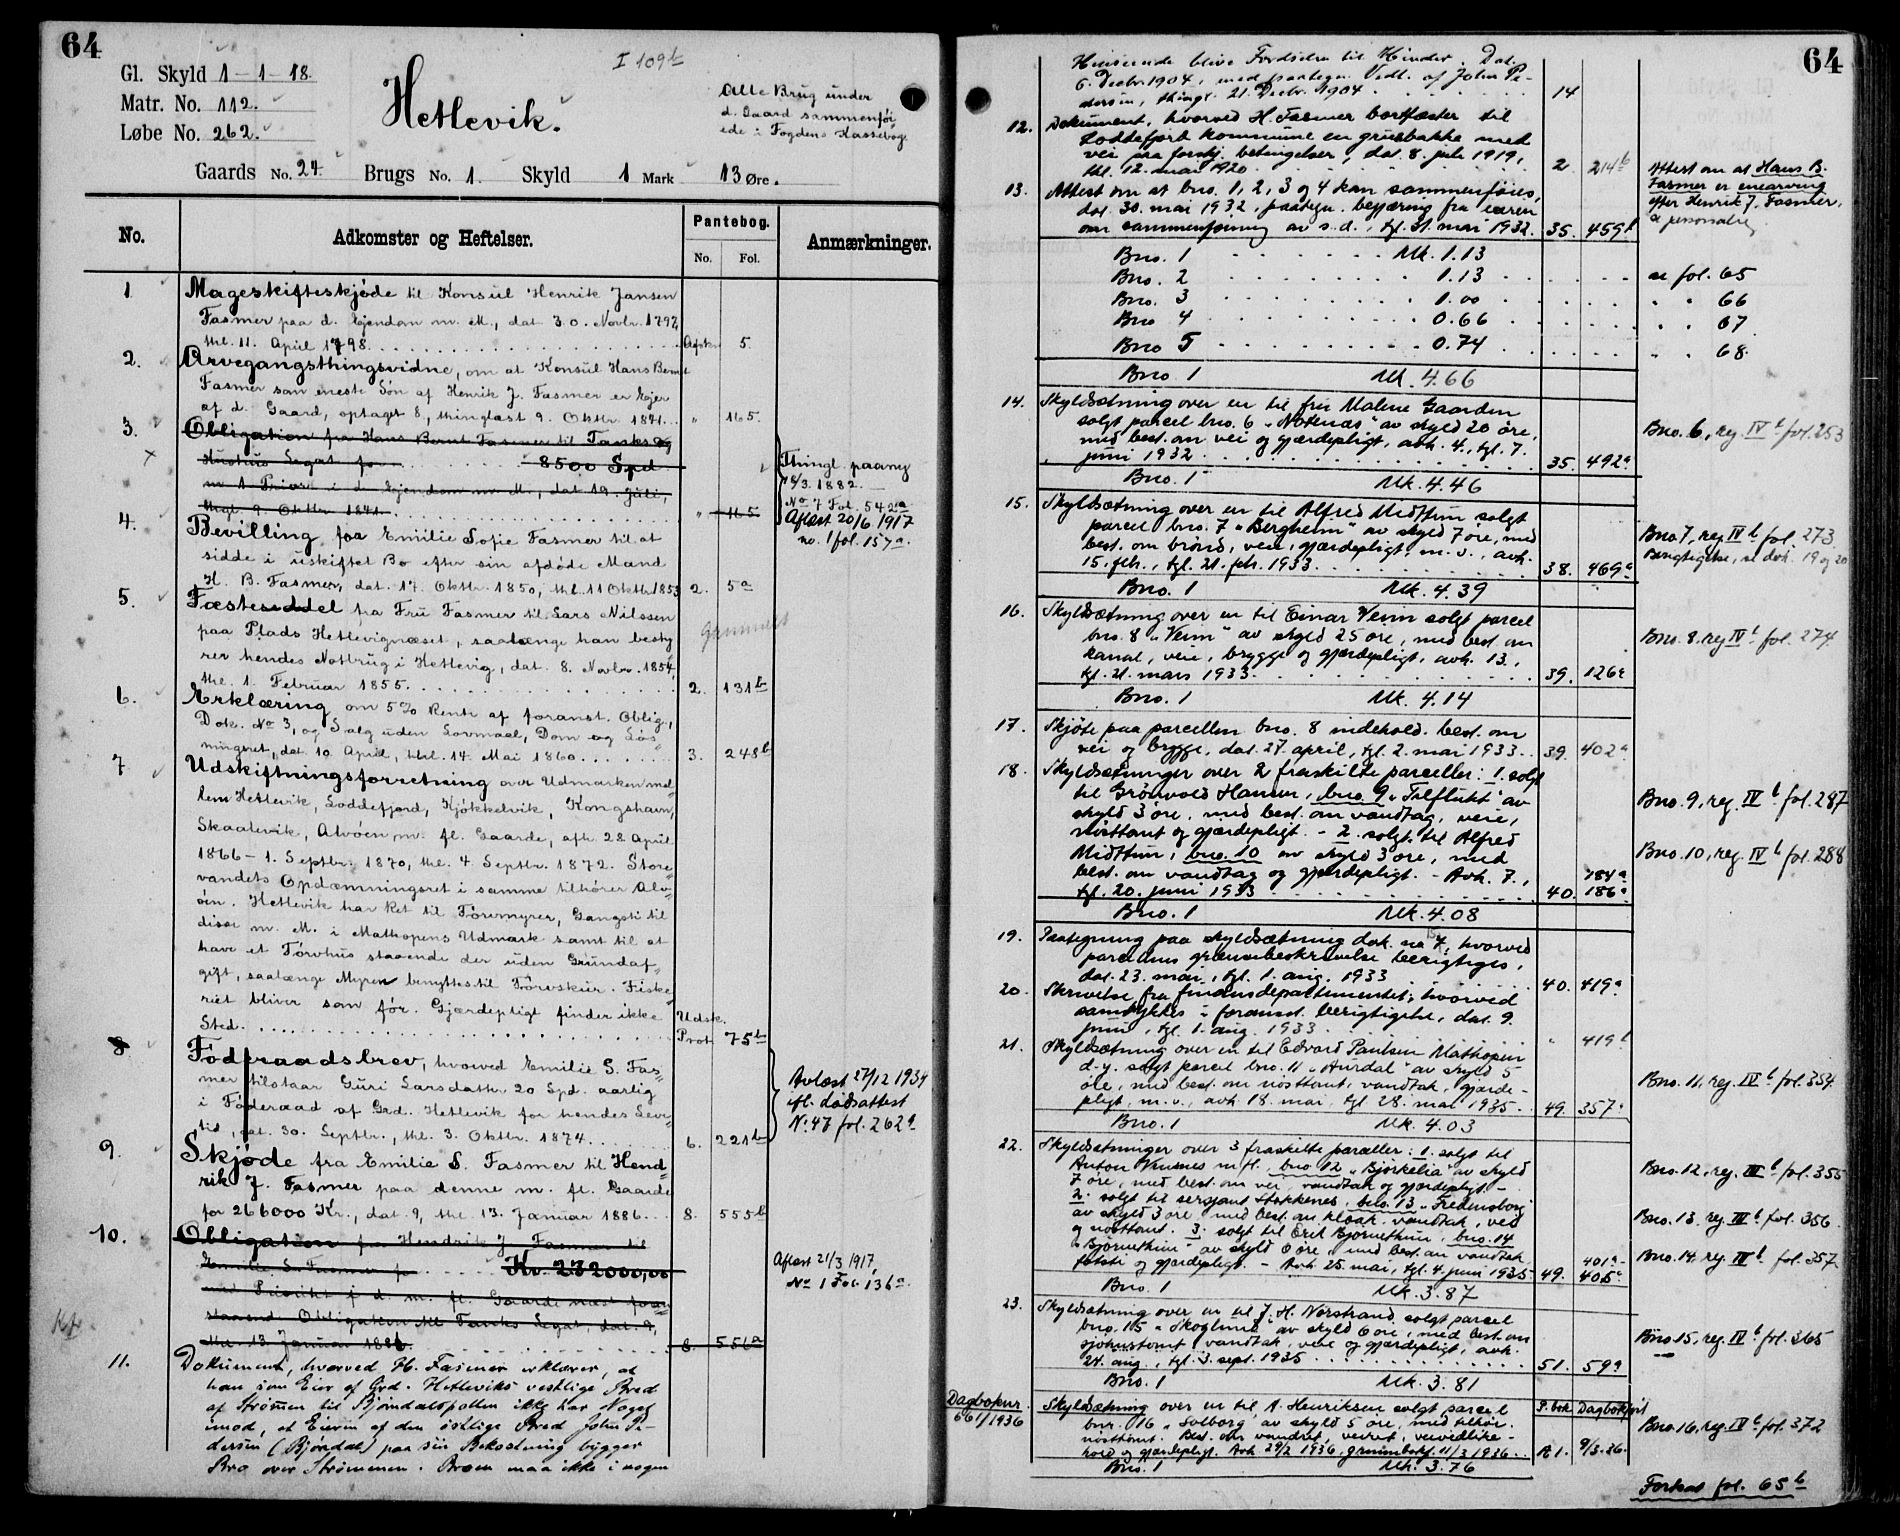 64
Gl. Skyld 1-1-18.
Matr. No. 112.
Løbe No. 262.
Hetlevik.
I 109b
Alle Brug under
d. Gaard sammenføi
ede i Fogdens Kassebog.
Gaards No. 24. Brugs No. 1. Skyld 1 Mark 13 Øre.
No. Adkomster og Heftelser. Pantebog. No. Fol. Anmærkninger.
1 Mageskifteskjøde til Konsul Henrik Jansen
Fasmer paa d. Ejendom m. M., dat. 30. Novbr. 1797,
thl. 11. April 1798. 5.
2. Arvegangsthingsvidne, om at Konsul Hans Bernt
Fasmer som eneste Søn af Henrik J. Fasmer er Ejer
af d. Gaard, optaget 8, thinglæst 9. Oktbr. 1841. " 165.
3. Obligation fra Hans Bernt Fasmer til Tanks og
Hustrus Legat for 8500 Spd
m 1 Prior. i d. Ejendom m. M., dat. 19. Juli,
thgl. 9. Oktbr. 1841. " 165
Thingl. paany
18/3. 1882.
No 7 Fol. 542a
Aflæst 20/6 1917
no. 1 fol. 157a.
4. Bevilling for Emilie Sofie Fasmer til at
sidde i uskiftet Bo efter sin afdøde Mand
H. B. Fasmer, dat. 17. Oktbr. 1850, thl. 11 Oktbr. 1853 2. 5a
5. Fæsteseddel fra Fru Fasmer til Lars Nilssen
paa Plads Hetlevignæset, saalænge han besty
rer hendes Notbrug i Hetlevig, dat. 8. Novbr. 1854,
thl. 1. Februar 1855. 2. 131b
6. Erklæring om 5% Rente af foranst. Oblig.,
Dok. No 3, og Salg uden Lovmaal, Dom og Løs"
ningsret, dat. 10. April, thl. 14. Mai 1860. 3. 248b
7 Udskiftningsforretning over Udmarken mel"
lem Hetlevik, Loddefjord, Kjøkkelvik, Kongshavn,
Skaalevik, Alvøen m. fl. Gaarde, afh. 28. April
1866 - 1. Septbr. 1870, thl. 4. Septbr. 1872. Store"
vandets Opdæmningsret i samme tilhører Alv"
øen. Hetlevik har Ret til Tørvmyrer, Gangsti til
disse m. M. i Mathopens Udmark samt til at
have et Tørvhus staaende der uden Grundaf"
gift, saalænge Myren benyttes til Tørvskur. Fiske"
riet bliver som før. Gjærdepligt finder ikke
Sted. Udsk. Prot 75b
8 Fødraadsbrev, hvorved Emilie S. Fas"
mer tilstaar Guri Larsdatter 20 Spd. aarlig
i Føderaad af Grd. Hetlevik for hendes Leve"
tid, dat. 30. Septbr., thl. 3. Oktbr. 1874. 6. 221b
Avlæst 27/12 1934
ifl. dødsattest
No. 47 fol. 262a
9. Skjøde fra Emilie S. Fasmer til Hend"
rik J. Fasmer paa denne m. fl. Gaarde
for 266000 Kr., dat. 9, thl. 13. Januar 1886. 8. 555b
10. Obligation fra Hendrik J. Fasmer til
Emilie S. Fasmer for Kr. 232000,00
med Prioritet i d. m. fl. Gaarde næst foran"
staaend Obligation til Tanks Legat, dat. 9,
thl. 13 Januar 1886. 8. 556a
Aflæst 21/3 1917
No 1 Fol. 136a.
11. Dokument, hvorved H. Fasmer erklærer, at
han som Eier af Grd. Hetleviks vestlige Bred
af Strømen til Bjørndalspollen ikke har Noget
imod, at Eieren af den østlige Bred John Pe-
dersen (Bjørndal) paa sin Bekostning bygger
Bro over Strømmen. Broen maa ikke i nogen
64
Henseende blive Færdselen til Hinder. Dat.
6. Decbr. 1904, med paategn. Vedt. af John Pe-
dersen, thingl. 21. Decbr. 1904. 14
12. Dokument, hvorved H. Fasmer bortfæster til
Loddefjord kommune en grusbakke med
vei paa forskj. betingelser, dat. 8. juli 1919,
thl. 12. mai 1920. 2 214b
Attest om at Hans B.
Fasmer er enearving
efter Henrik J. Fasmer,
se personalreg.
13. Attest om at bno. 1, 2, 3 og 4 kan sammenføies,
dat. 30. mai 1932, paategn. begjæring fra eieren
om sammenføining av s. d., tgl. 31. mai 1932. 35. 459b
Bno. 1 Mk. 1.13
Bno. 2 1.13 se fol. 65
Bno. 3 1.00 " " 66
Bno 4 0.66 " " 67
Bno 5 0.74 " " 68.
Bno. 1 Mk. 4.66
14. Skyldsætning over en til fru Malene Gaarden
solgt parcel bno. 6 "Notenæs" av skyld 20 øre,
med best. om vei og gjærdepligt, avh. 4., tgl. 7.
juni 1932. 35. 492a
Bno. 6, reg. IVb fol. 253
Bno. 1 Mk. 4.46
15. Skyldsætning over en til Alfred Midttun solgt
parcel bno. 7 "Bergheim" av skyld 7 øre, med
best. om brønd, veie, gjærdepligt m. v., avh.
15. febr., tgl. 21. febr. 1933. 38. 469a
Bno. 7, reg IVb fol. 273
Berigtigelse, se dok. 19 og 20
Bno. 1 Mk. 4.39
16. Skyldsætning over en til Einar Venn solgt parcel
bno. 8 "Venn" av skyld 25 øre, med best. om
kanal, veie, brygge og gjærdepligt, avh. 13.,
tgl. 21. mars 1933. 39. 126a
Bno. 8. reg IVb. fol. 274.
Bno. 1 Mk. 4.14
17. Skjøte paa parcellen bno. 8 indehold. best. om
vei og brygge, dat. 27. april, tgl. 2. mai 1933. 39. 402a
18. Skyldsætninger over 2 fraskilte parceller: 1. solgt
til Grønvold Hansen, bno. 9 "Tilflukt" av
skyld 3 øre, med best. om vandtag, veie,
nøsttomt og gjærdepligt. - 2. solgt til Alfred
Midttun, bno. 10 av skyld 3 øre, med
best. om vandtag og gjærdepligt. - Avh. 7.,
tgl. 20. juni 1933 40. 184a 186a
Bno. 9, reg. IVb fol. 287
Bno. 10, reg. IVb fol. 288
Bno. 1 Mk. 4.08
19. Paategning paa skyldsætning dok. no 15, hvorved
parcellens grænsebeskrivelse berigtiges,
dat. 23. mai, tgl. 1. aug. 1933 40. 419a
20. Skrivelse fra finansdepartementet, hvorved
samtykkes i foranst. berigtigelse, dat. 9.
juni, tgl. 1. aug. 1933. " 419b
21. Skyldsætning over en til Edvard Paulsen Mathopen
d. y. solgt parcel bno. 11 "Aurdal" av skyld 5
øre, med best. om nøsttomt, vandtak, gjærde-
pligt, m. v., avh. 18. mai, tgl. 28. mai 1935. 49. 357a
Bno. 11, reg. IVb fol. 354
Bno. 1 Mk. 4.03
22. Skyldsætninger over 3 fraskilte parceller: 1. solgt til
Anton m. fl., bno 12 "Bjørkelia" av skyld
7 øre, med best. om vei, vandtak og gjærdepligt. -
2. solgt til sersjant Stokkenes, bno. 13 "Fredensborg"
av skyld 3 øre, med best. om kloak, vandtak, vei
og nøsttomt. 3. solgt til Erik Bjørnethun, bno. 14
"Bjørnethun" av skyld 6 øre, med best. om vandtak,
fotsti og gjærdepligt. - Avh. 25. mai, tgl. 4. juni 1935 49. 401a- 405a
Bno. 12, reg. IVb fol. 355
Bno. 13. reg. IVb fol. 356
Bno. 14. reg. IVb fol. 357
Bno. 1 Mk. 3.87
23. Skyldsætning over en til J. H. Norstrand solgt parcel
bno. 15 "Skoglund" av skyld 6 øre, med best. om
sjøhustomt, vandtak, veie og gjærdepligt, avh.
24. aug., tgl. 3. sept. 1935 51. 59a
Bno. 15, reg. IVb fol. 365
Bno. 1 Mk. 3.81
Dagboknr.
661/1936
Skyldsætning over en til A. Henriksen solgt parcel P. bok Dagbokført
bnr. 16 "Solborg" av skyld 5 øre, med tilhør.
nøsttomt. Best. om vandret, veiret, veivedlike-
hold og gjærdepligt. Avh 29/2 1936, grunnbokf. 11/3 1936. A1. 9/3-36.
Bno. 16, reg. IVb fol. 372
Bno. 1 Mk. 3.76
Fortsat fol. 65b